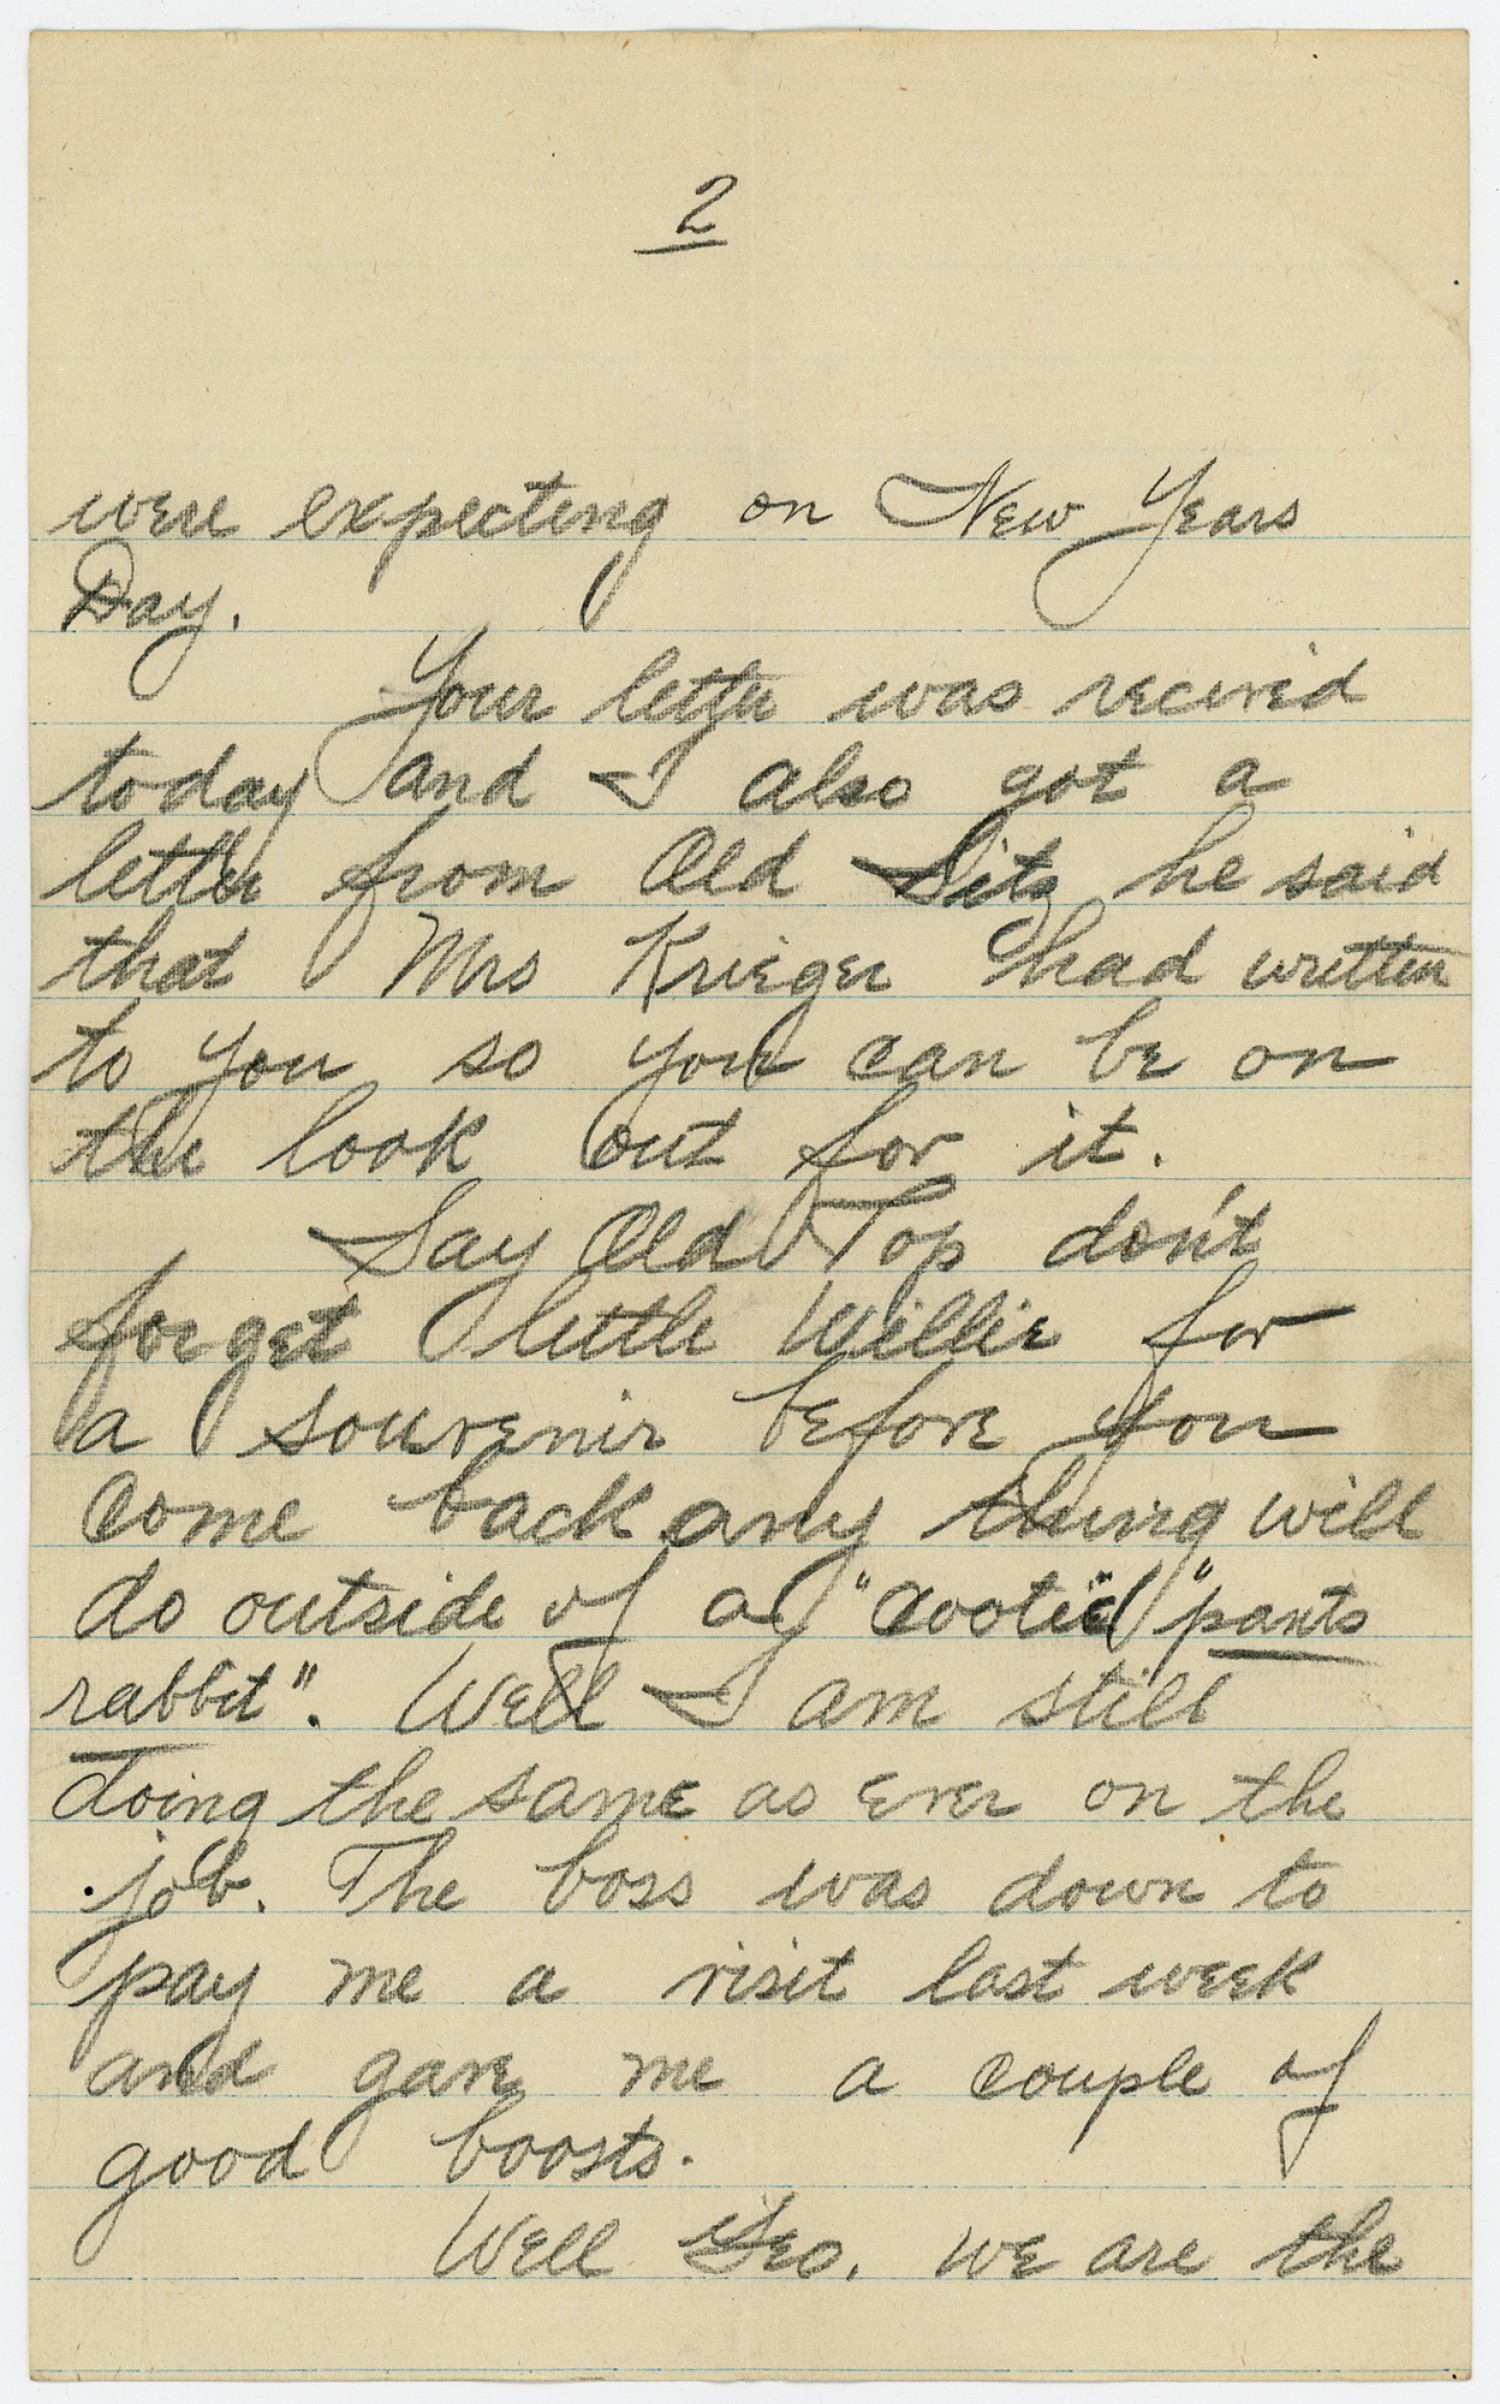 2
were expecting on New Years
Day.
Your letter was received
today and I also got a
letter from Old Sitz he said
that Mrs Krieger had written
to you so you can be on
the look out for it.
Say Old Top don't
forget little Willie for
a souvenir before you
come back any thing will
do outside of a "cootie" "pants
rabbit". Well I am still
doing the same as ever on the
job. The boss was down to
pay me a visit last week
and gave me a couple of
good boosts.
Well Geo. we are the